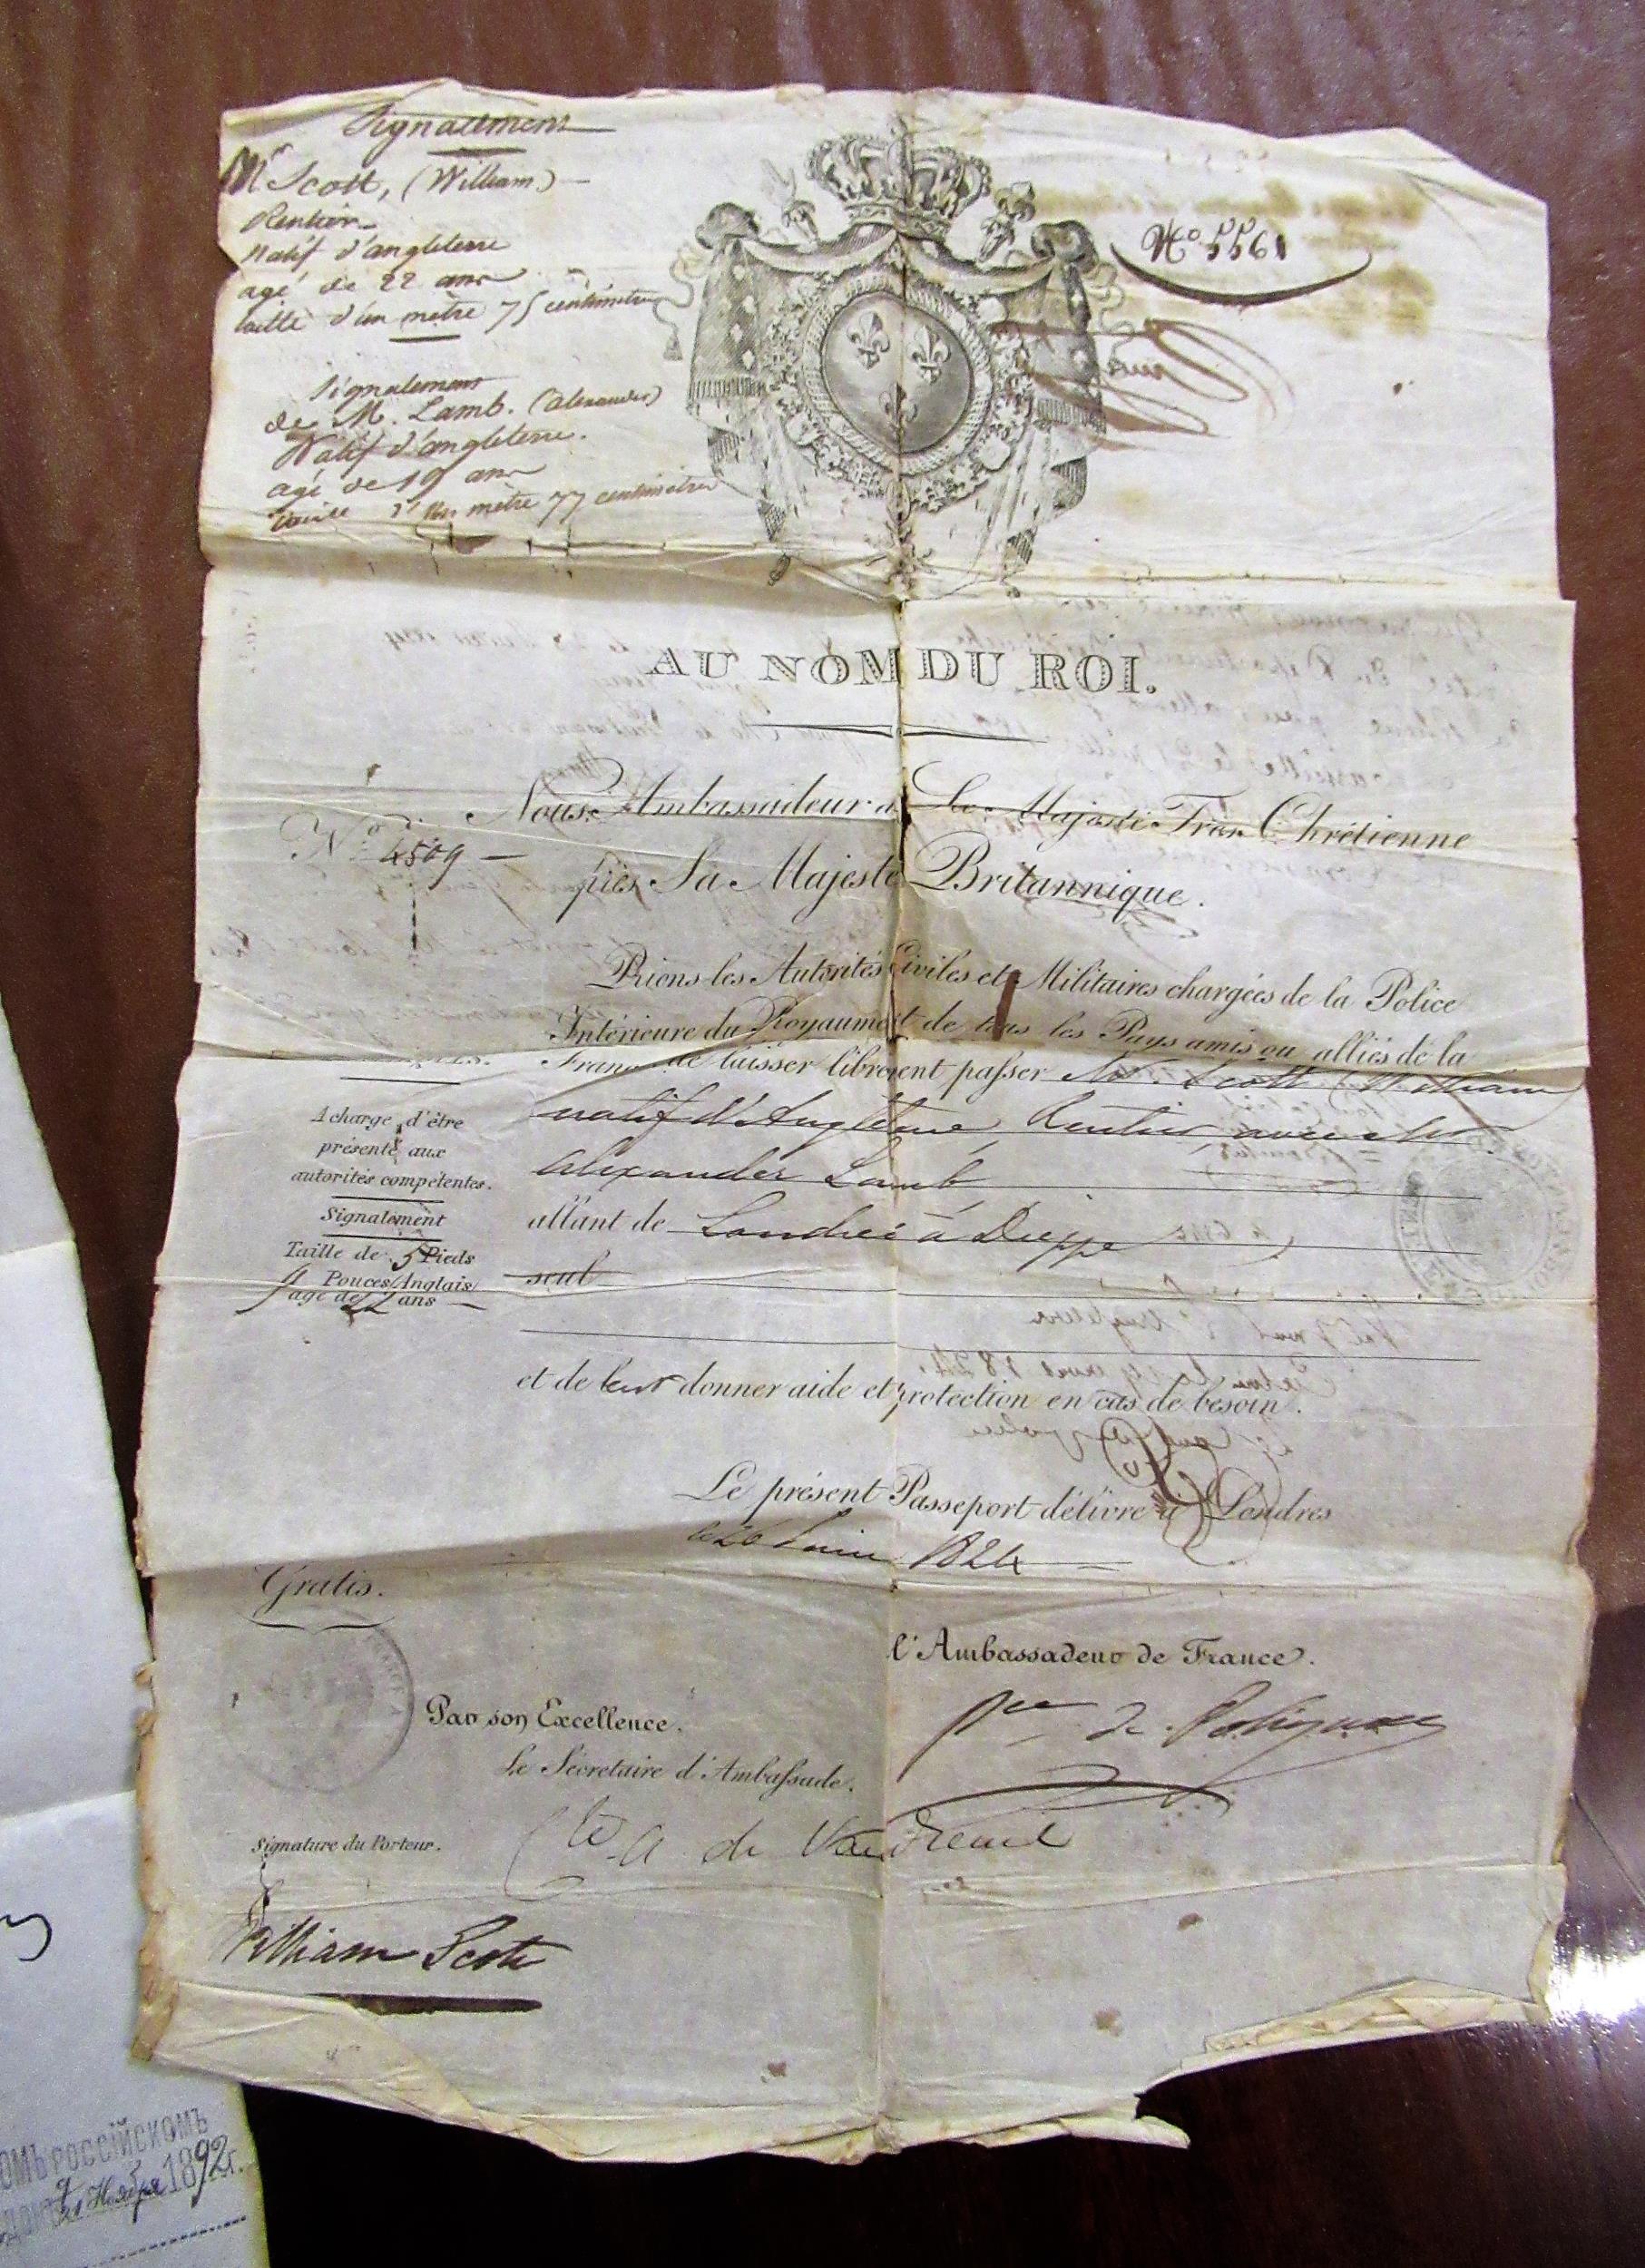 Signalement
Mr Scott, (William) —
Rentier
Natif d'angleterre
agé de 22 ans
taille d'un mètre 75 centimètres
Signalement
de M. Lamb. (Alexander)
Natif d'angleterre.
agé de 19 ans
taille d'un mètre 77 centimètres
No 5561
AU NOM DU ROI.
Nous Ambassadeur de Sa Majesté Très Chrétienne
près Sa Majesté Britannique.
No 4509 —
Prions les Autorités Civiles et Militaires chargées de la Police
Intérieure du Royaume et de tous les Pays amis ou alliés de la
France de laisser librement passer Mr. Scott (William
natif d'Angleterre, Rentier, avec Mr.
Alexander Lamb
allant de Londres à Dieppe
seul
A charge d'être
présenté aux
autorités compétentes.
Signalement
Taille de 5 Pieds
9 Pouces Anglais
agé de 22 ans
et de leur donner aide et protection en cas de besoin.
Le présent Passeport délivré à Londres
le 26 Juin 1824
Gratis.
l'Ambassadeur de France.
Pce de Polignac
Par son Excellence.
Le Sécretaire d'Ambassade.
Cte A de Vaudreuil
Signature du Porteur.
William Scott
РОССІЙСКОМЪ
Ноября 1892 г.